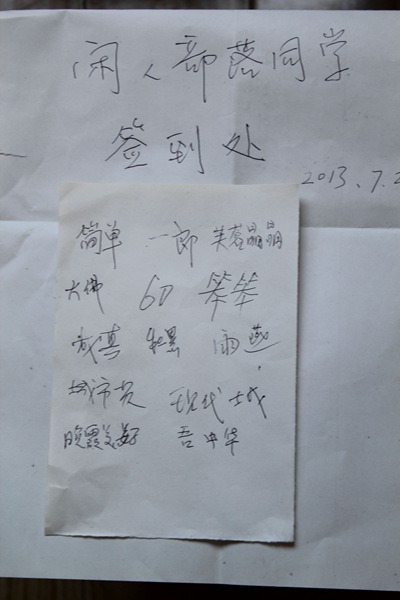 闲人部落同学
签到处
2013.7.2
简单 一郎 芙蓉晶晶
大佛 60 笨笨
成真 牡 雨燕
城市 现代城
晚霞美好 吾中华